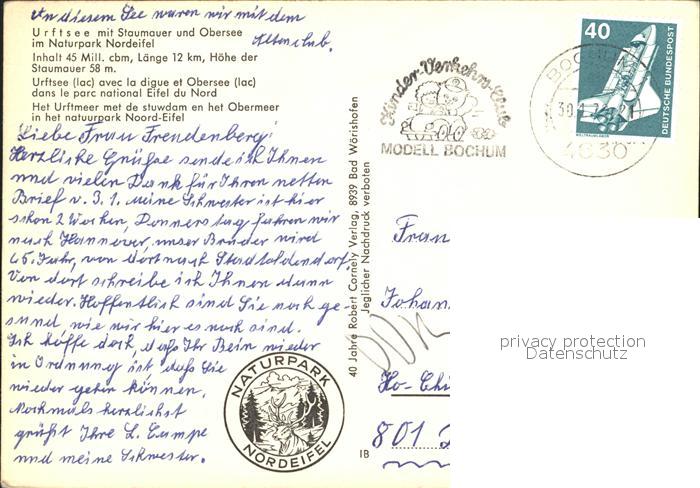 An diesem See waren wir mit dem
Altenclub.
Urftsee mit Staumauer und Obersee
im Naturpark Nordeifel
Inhalt 45 Mill. cbm, Länge 12 km, Höhe der
Staumauer 58 m.
Urftsee (lac) avec la digue et Obersee (lac)
dans le parc national Eifel du Nord
Het Urftmeer met de stuwdam en het Obermeer
in het natuurpark Noord-Eifel
Liebe Frau Freudenberg!
Herzliche Grüße sende ich Ihnen
und vielen Dank für Ihren netten
Brief v. 3.1. meine Schwester ist hier
schon 2 Wochen, Donnerstag fahren wir
nach Hannover, unser Bruder wird
65 Jahr, von dort nach Stadtoldendorf,
Von dort schreibe ich Ihnen dann
wieder. Hoffentlich sind Sie noch ge-
sund wie wir hier es noch sind.
Ich hoffe doch, daß Ihr Bein wieder
in Ordnung ist daß Sie
wieder gehen können.
Nochmals herzlichst
grüßt Ihre L. Cumpe
und meine Schwester.
NATURPARK
NORDEIFEL
40 Jahre Robert Cornely Verlag, 8939 Bad Wörishofen
Jeglicher Nachdruck verboten
IB
Kinder-Verkehrs-
MODELL BOCHUM
BOCHUM
4630
40
DEUTSCHE BUNDESPOST
WELTRAUMLABOR
Frau
Johan
Ho-Chi
801
privacy protection
Datenschutz